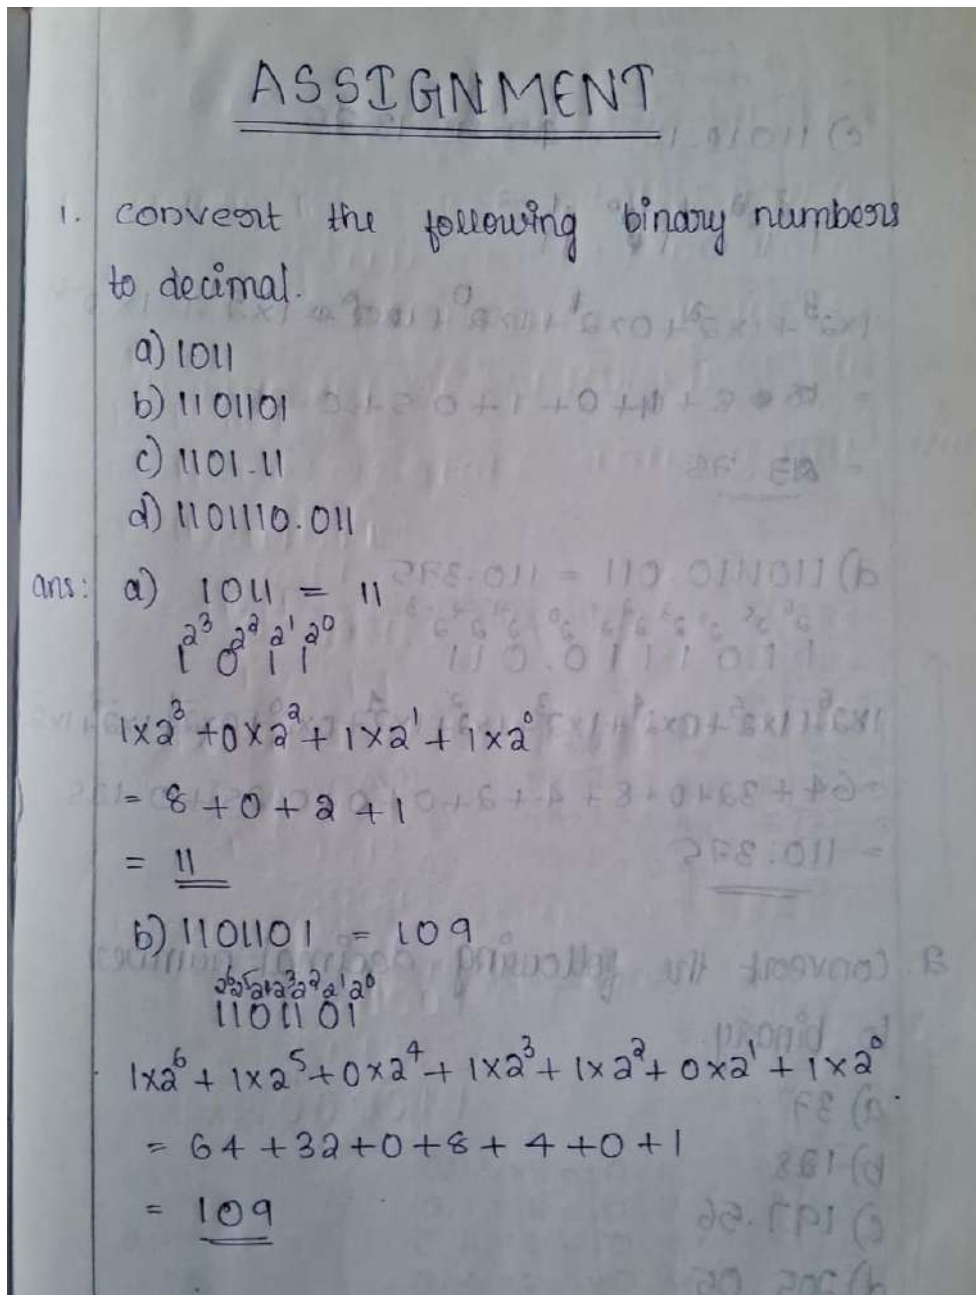 ASSIGNMENT
1. convert the following binary numbers
to decimal.
a) 1011
b) 1101101
c) 1101.11
d) 1101110.011
ans: a) 1011 = 11
2³ 2² 2¹ 2⁰
1 0 1 1
1×2³ + 0×2² + 1×2¹ + 1×2⁰
= 8 + 0 + 2 + 1
= 11
b) 1101101 = 109
2⁶ 2⁵ 2⁴ 2³ 2² 2¹ 2⁰
1101101
1×2⁶ + 1×2⁵ + 0×2⁴ + 1×2³ + 1×2² + 0×2¹ + 1×2⁰
= 64 + 32 + 0 + 8 + 4 + 0 + 1
= 109